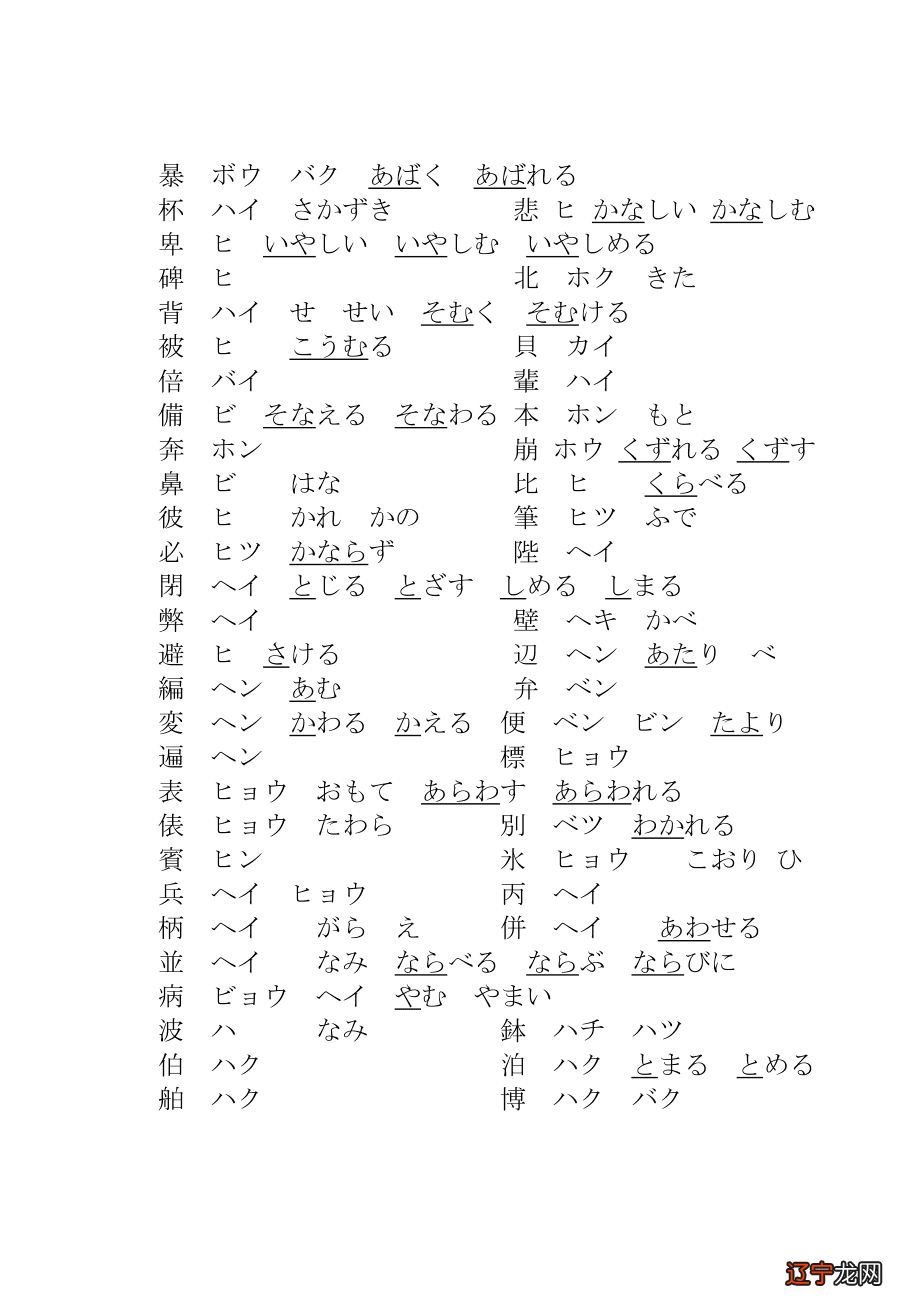 暴　ボウ　バク　あばく　あばれる
杯　ハイ　さかずき　悲　ヒ　かなしい　かなしむ
卑　ヒ　いやしい　いやしむ　いやしめる
碑　ヒ　北　ホク　きた
背　ハイ　せ　せい　そむく　そむける
被　ヒ　こうむる　貝　カイ
倍　バイ　輩　ハイ
備　ビ　そなえる　そなわる　本　ホン　もと
奔　ホン　崩　ホウ　くずれる　くずす
鼻　ビ　はな　比　ヒ　くらべる
彼　ヒ　かれ　かの　筆　ヒツ　ふで
必　ヒツ　かならず　陛　ヘイ
閉　ヘイ　とじる　とざす　しめる　しまる
弊　ヘイ　壁　ヘキ　かべ
避　ヒ　さける　辺　ヘン　あたり　べ
編　ヘン　あむ　弁　ベン
変　ヘン　かわる　かえる　便　ベン　ビン　たより
遍　ヘン　標　ヒョウ
表　ヒョウ　おもて　あらわす　あらわれる
俵　ヒョウ　たわら　別　ベツ　わかれる
賓　ヒン　氷　ヒョウ　こおり　ひ
兵　ヘイ　ヒョウ　丙　ヘイ
柄　ヘイ　がら　え　併　ヘイ　あわせる
並　ヘイ　なみ　ならべる　ならぶ　ならびに
病　ビョウ　ヘイ　やむ　やまい
波　ハ　なみ　鉢　ハチ　ハツ
伯　ハク　泊　ハク　とまる　とめる
舶　ハク　博　ハク　バク
辽宁龙网